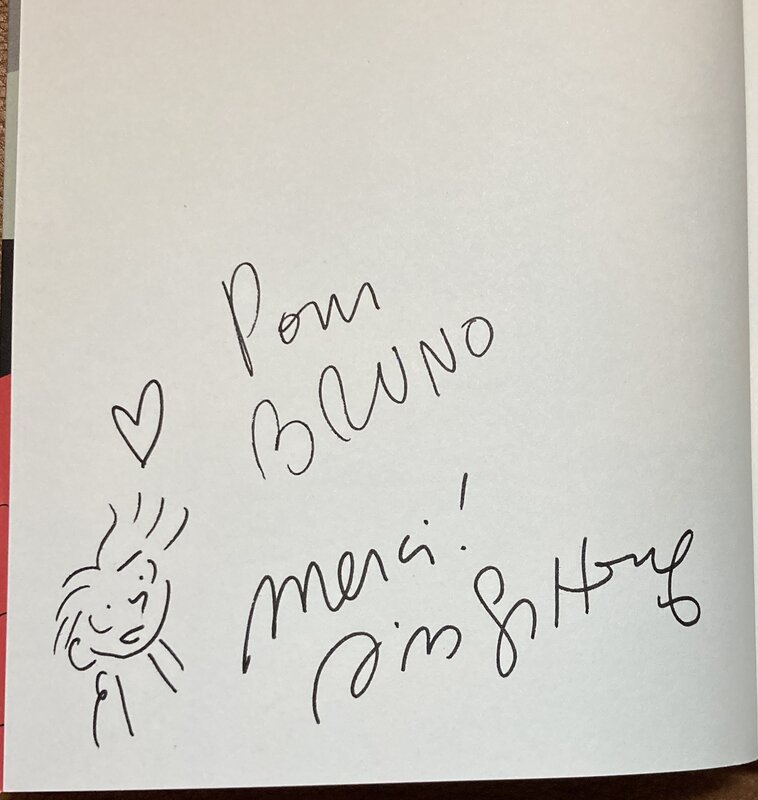 Pour
BRUNO
merci!